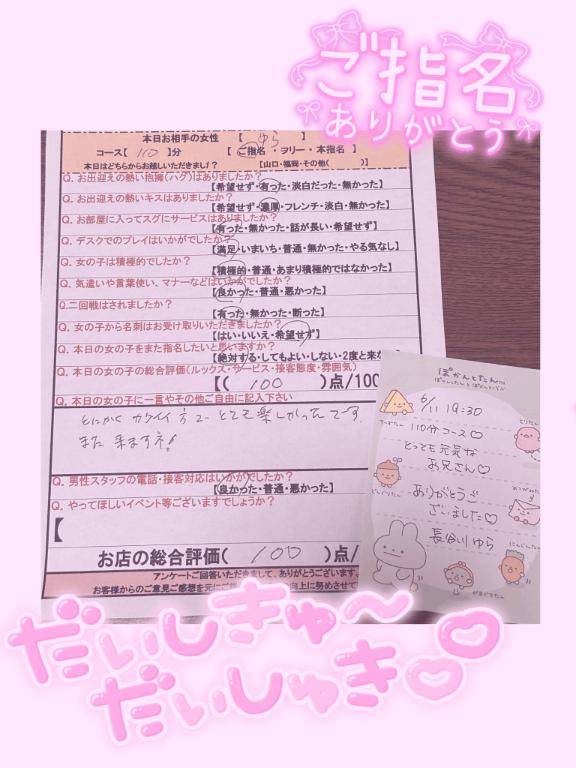 ご指名
ありがとう
本日お相手の女性 【 ゆら 】
コース【 110 】分 【 ご指名 ・ フリー ・ 本指名 】
本日はどちらからお越しいただきましたか? 【山口・福岡・その他( )】
Q. お出迎えの熱い抱擁(ハグ)はありましたか?
【希望せず・有った・淡白だった・無かった】
Q. お出迎えの熱いキスはありましたか?
【希望せず・濃厚・フレンチ・淡白・無かった】
Q. お部屋に入ってスグにサービスはありましたか?
【有った・無かった・話が長い・希望せず】
Q. デスクでのプレイはいかがでしたか?
【満足・いまいち・普通・無かった・やる気なし】
Q. 女の子は積極的でしたか?
【積極的・普通・あまり積極的ではなかった】
Q. 気遣いや言葉使い、マナーなどはいかがでしたか?
【良かった・普通・悪かった】
Q.二回戦はされましたか?
【有った・無かった・断った】
Q. 女の子から名刺はお受け取りいただきましたか?
【はい・いいえ・希望せず】
Q. 本日の女の子をまた指名したいと思いますか?
【絶対する・してもよい・しない・2度と来な
Q. 本日の女の子の総合評価(ルックス・サービス・接客態度・雰囲気)
【( 100 )点/100
Q. 本日の女の子に一言やその他ご自由に記入下さい
とにかく カワイイ 方で とても 楽しかったです
また 来ますネ!
Q. 男性スタッフの電話・接客対応はいかがでしたか?
【良かった・普通・悪かった】
Q. やってほしいイベント等ございますでしょうか?
【
お店の総合評価( 100 )点/
アンケートご回答いただきまして、ありがとうございます。
お客様からのご意見ご感想を元にご 向上に努めさせて
ぽかんとたん
6/11 19:30
110分コース♡
とっても元気な
お兄さん♡
ありがとうご
ざいました♡
長谷川ゆら
だいしきゅ～
だいしゅき♡